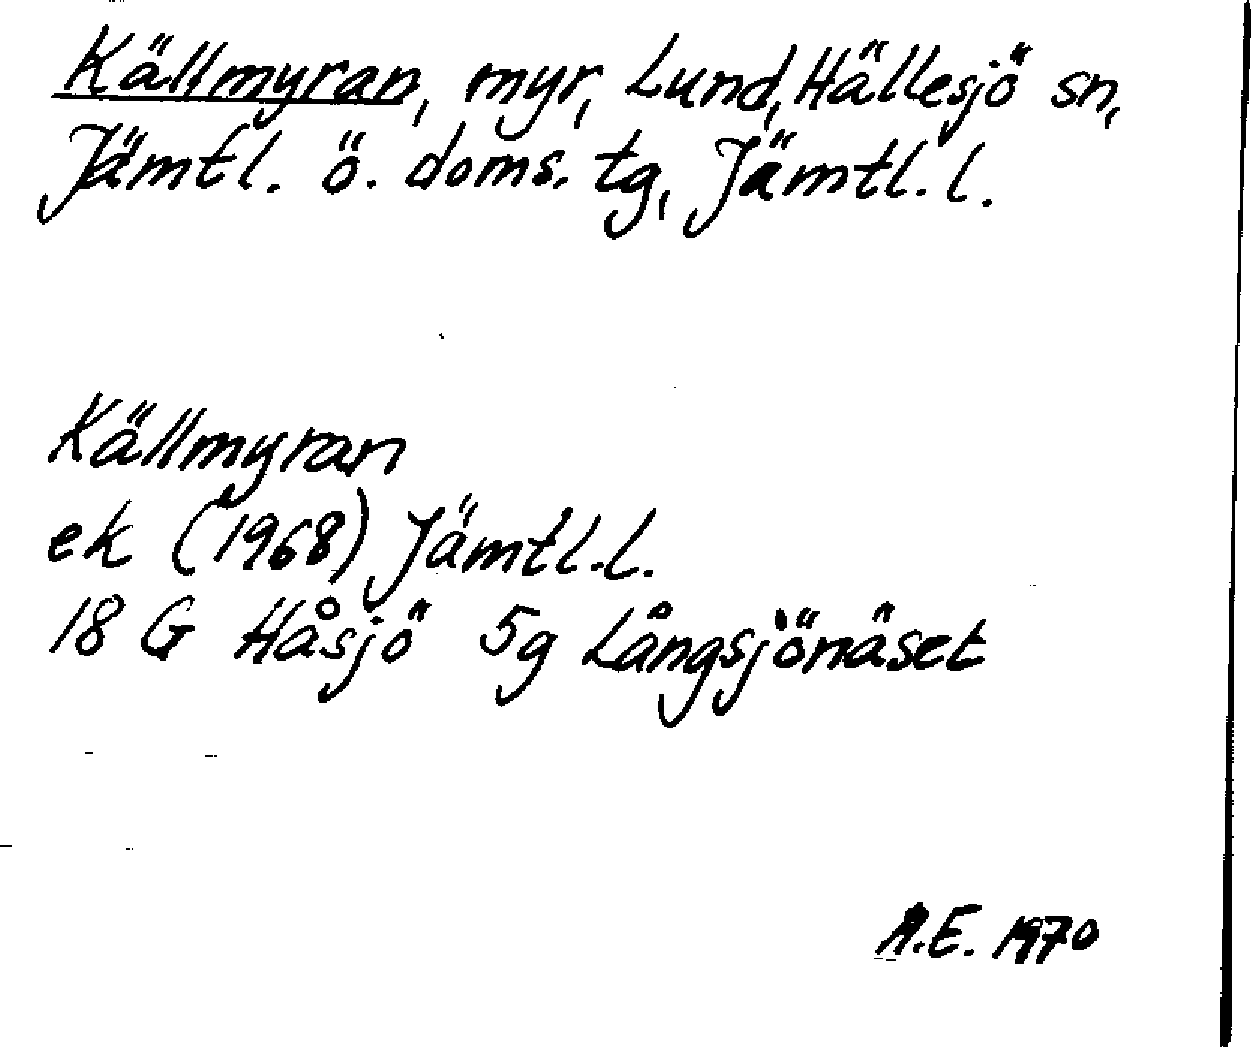 Källmyran, myr, Lund, Hällesjö sn,
Jämtl. ö. doms. tg, Jämtl. l.
Källmyran
ek (1968) Jämtl. l.
18 G Håsjö 5g Långsjönäset
A.E. 1970